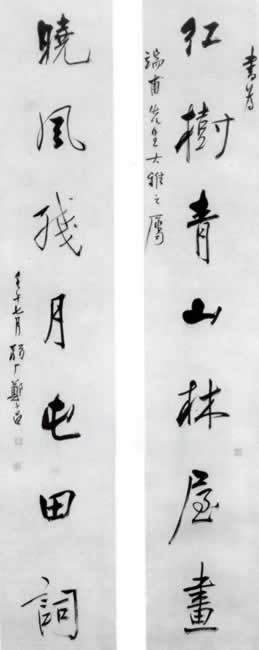 書為
端甫先生大雅之屬
紅樹青山林屋畫
曉風殘月屯田詞
壬午七月 鄭